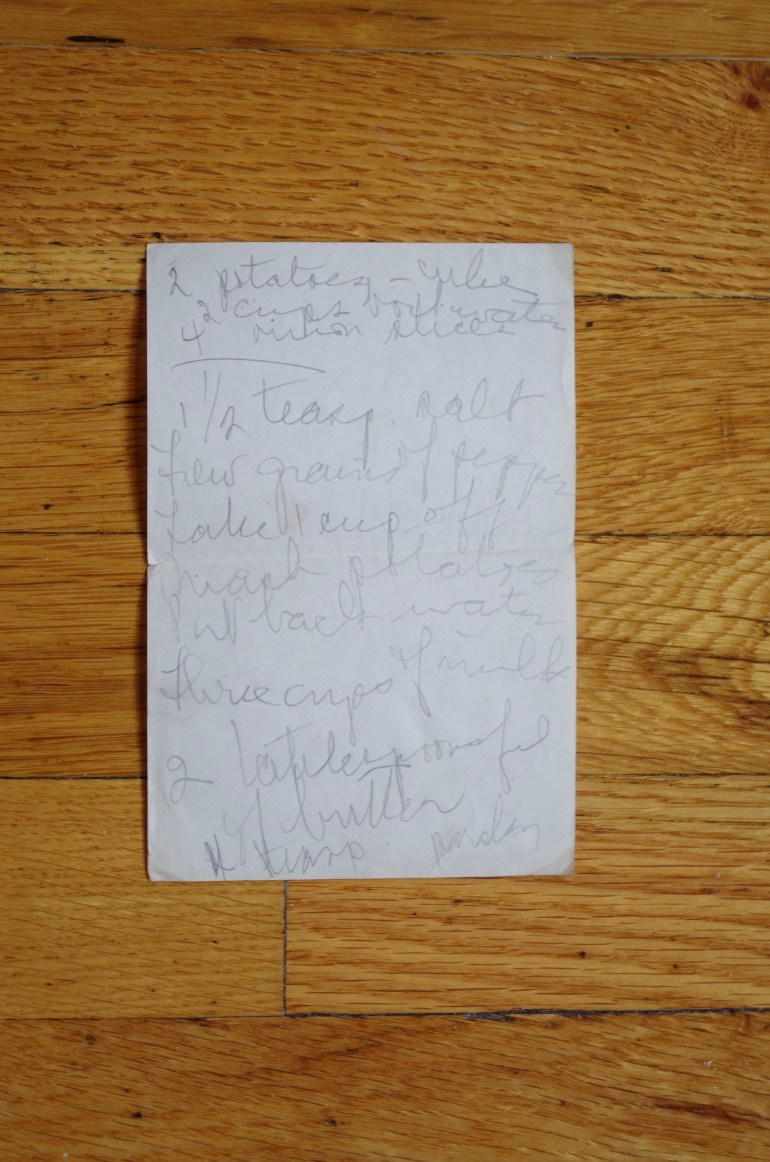 2 potatoes - cube
2 cups boil water
4 onion slices
1 1/2 teasp. salt
Few grains of pepper
take 1 cup off
mash potatoes
Put back water
three cups of milk
2 tablespoonsful
of butter
teasp. parsley